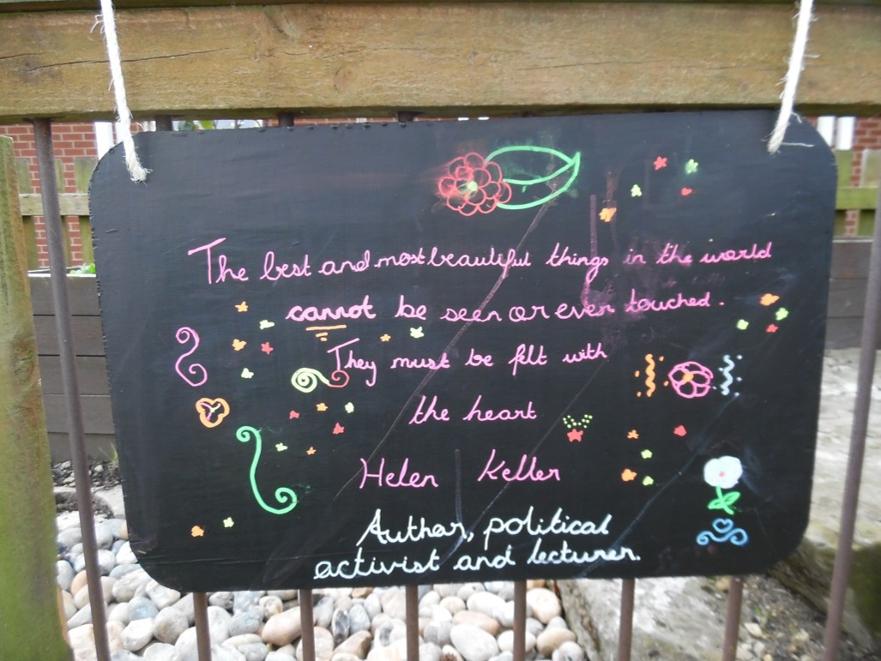 The best and most beautiful things in the world
cannot be seen or ever touched.
They must be felt with
the heart
Helen Keller
Author, political
activist and lecturer.